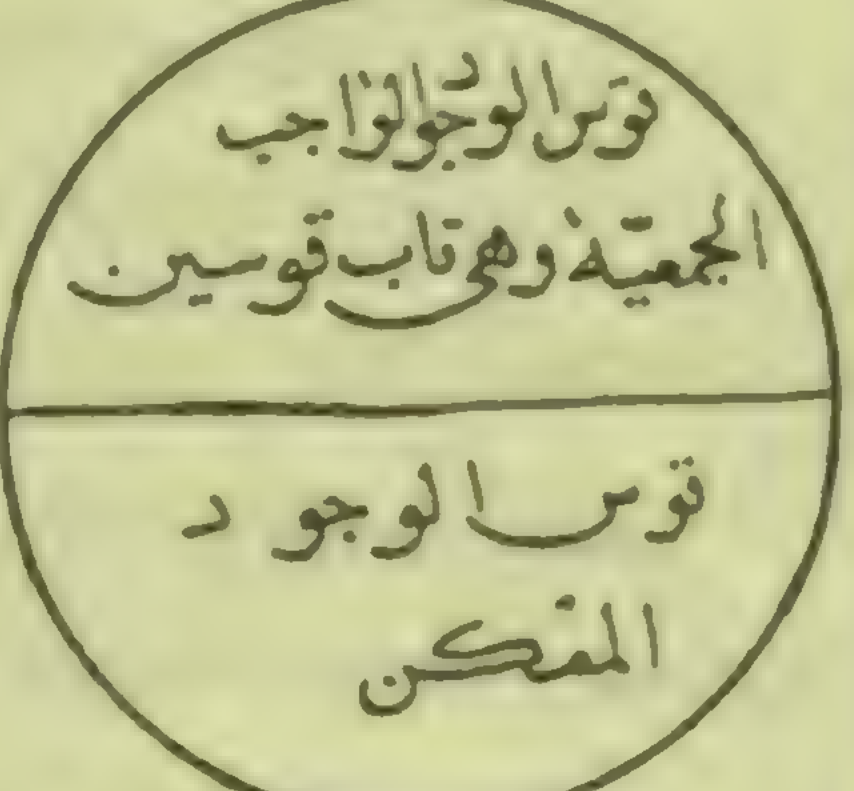 قوس الوجود الواجب
الجمعية وهى قاب قوسين
قوس الوجود
الممكن